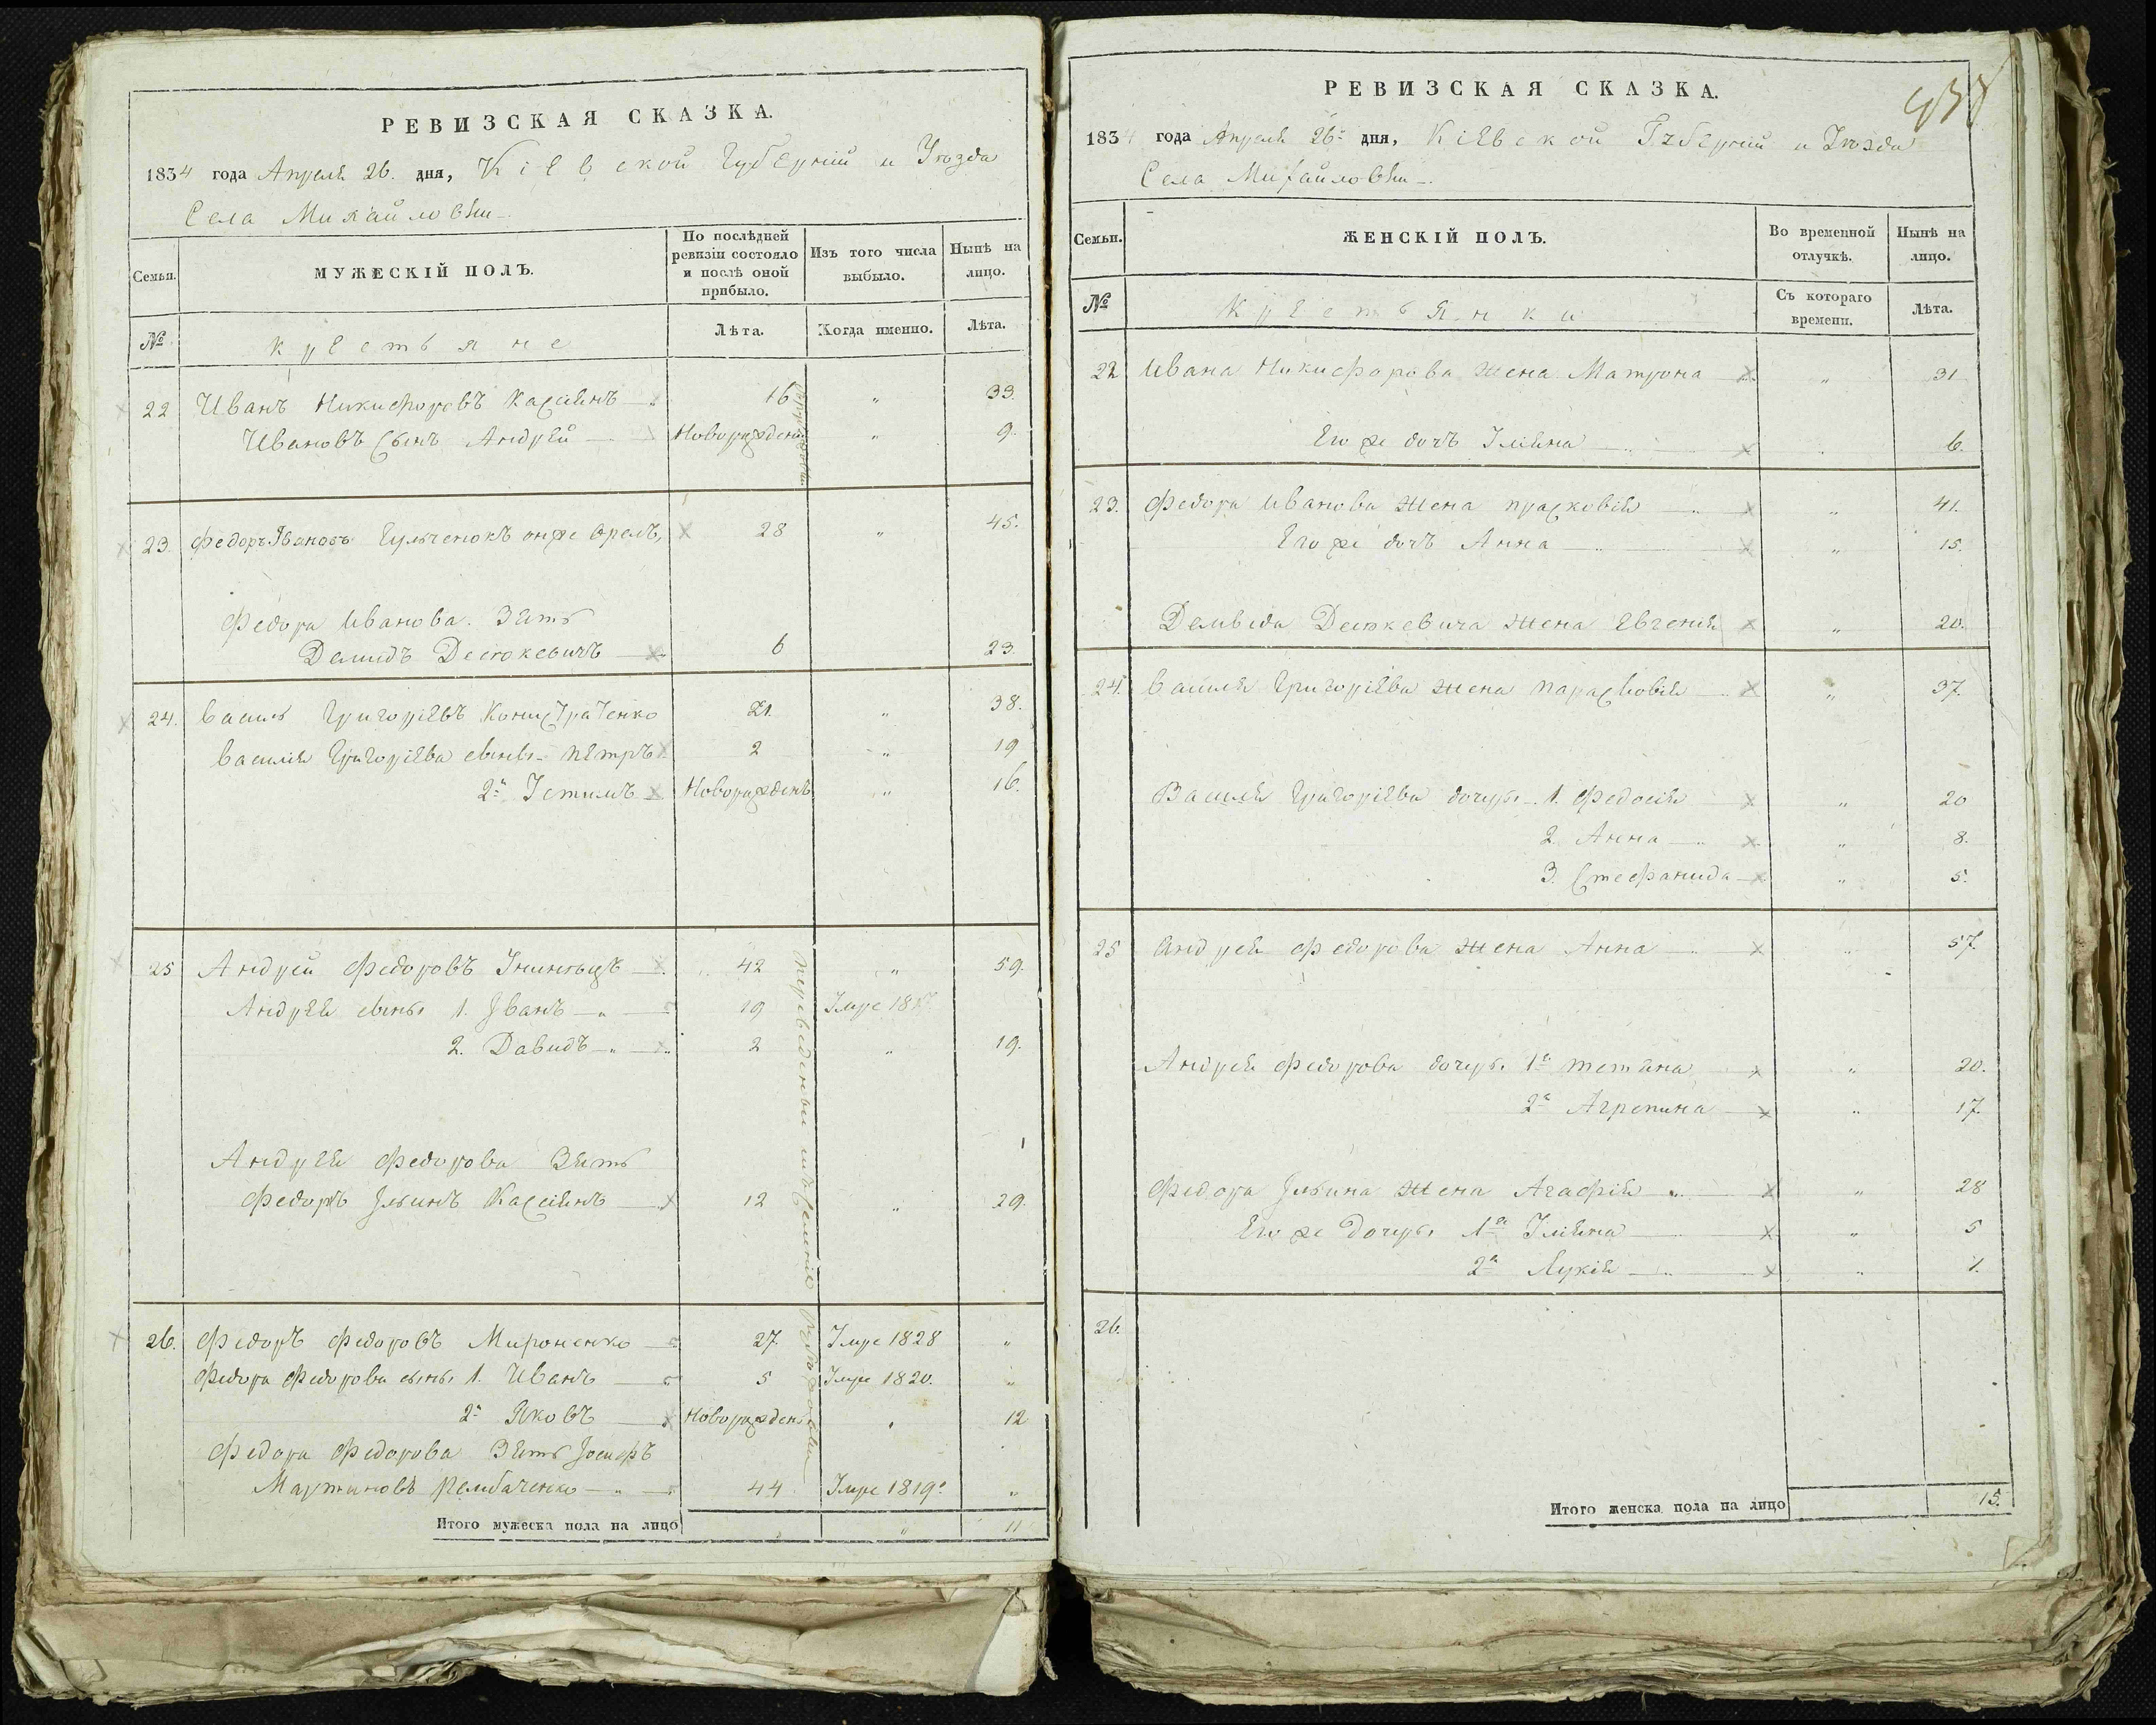 РЕВИЗСКАЯ СКАЗКА.
1834 года Апреля 26. дня, Кіевской Губерніи и Уѣзда
Села Михайловки
Семьи.
МУЖЕСКІЙ ПОЛЪ.
По послѣдней ревизіи состояло и послѣ оной прибыло.
Изъ того числа выбыло.
Нынѣ на лицо.
№
крестьяне
Лѣта.
Когда именно.
Лѣта.
22 Иванъ Никифоровъ Касіянъ 16 " 33.
Ивановъ Сынъ Андрей Новорожденъ " 9.
23. Федоръ Ивановъ Гульченокъ онже Орелъ, 28 " 45.
Федора Иванова Зять
Демидъ Десюкевичъ 6 23.
24. Василь Григоріевъ 21. " 38.
Василія Григоріева сыны Петръ 2 " 19
2й Устимъ Новорожденъ " 16.
25 Андрей Федоровъ 42 " 59.
Андрея сыны 1. Иванъ 19 Умре
2. Давидъ 2 " 19.
Андрея Федорова Зять
Федоръ Ильинъ Касіянъ 12 " 29.
26. Федоръ Федоровъ Мироненко 27. Умре 1828 "
Федора Федорова сыны 1. Иванъ 5 Умре 1820. "
2й Яковъ Новорожденъ " 12
Федора Федорова Зять Іосифъ
Мартиновъ 44 Умре 1819 "
Итого мужеска пола на лицо " " 11
РЕВИЗСКАЯ СКАЗКА.
1834 года Апреля 26 дня, Кіевской Губерніи и Уѣзда
Села Михайловки
Семьи.
ЖЕНСКІЙ ПОЛЪ.
Во временной отлучкѣ.
Нынѣ на лицо.
№
Крестьянки
Съ котораго времени.
Лѣта.
22 Ивана Никифорова жена Матрона " 31
Его же дочъ Уліяна " 6.
23. Федора Иванова жена Прасковія " 41.
Его же дочъ Анна " 15.
Демида Десюкевича жена Евгенія " 20.
24. Василія Григоріева жена Парасковія " 37.
Василія Григоріева дочери 1. Федосія " 20
2. Анна " 8.
3. Стефанида " 5.
25 Андрея Федорова жена Анна " 57.
Андрея Федорова дочери 1я Тетяна " 20.
2я Агрепина " 17.
Федора Ильина жена Агафія " 28
Его же дочери 1я Уліяна " 5
2я Лукія " 1.
26.
Итого женска пола на лицо 15.